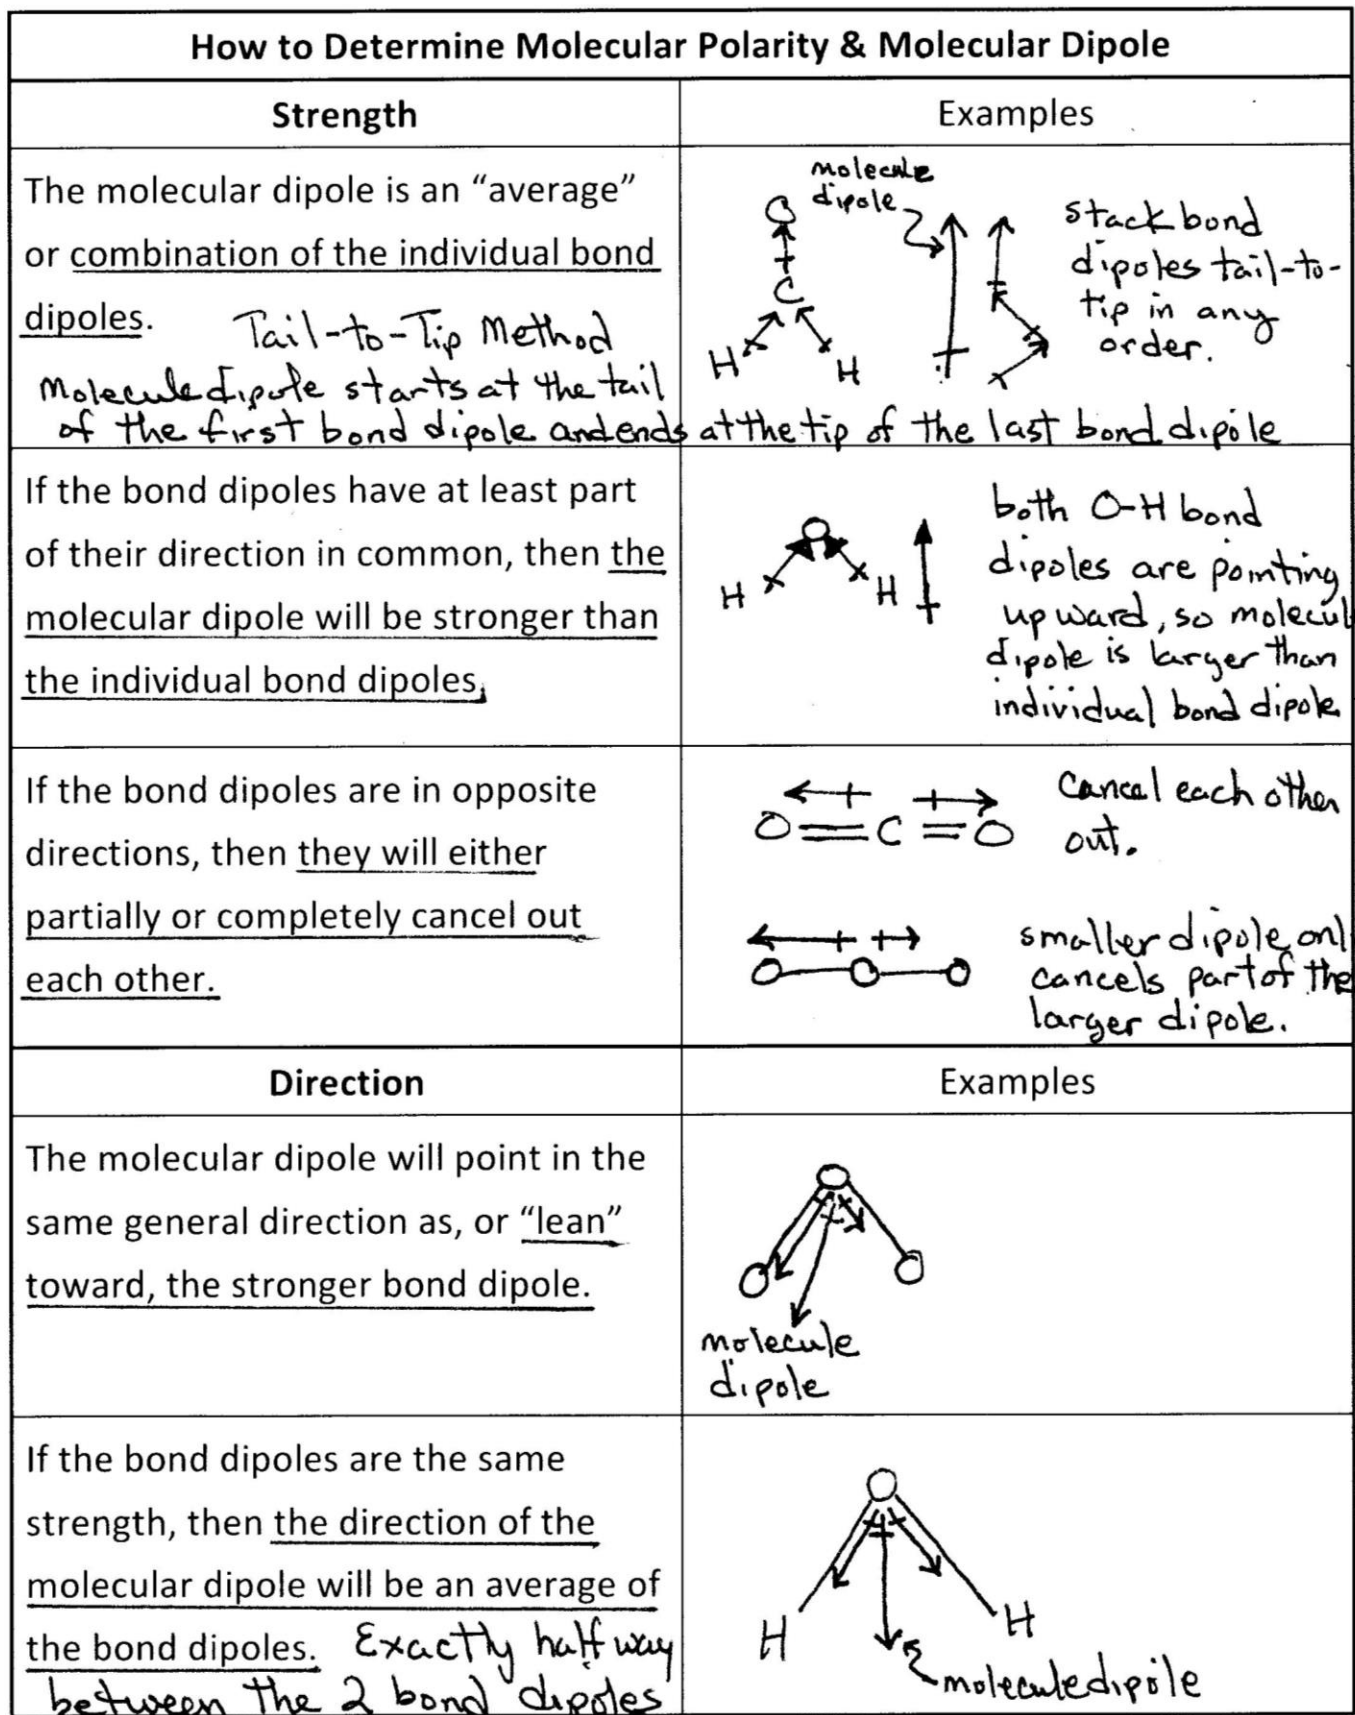 How to Determine Molecular Polarity & Molecular Dipole
Strength
Examples
The molecular dipole is an “average”
or combination of the individual bond
dipoles.
Tail-to-Tip Method
Molecule dipole starts at the tail
of the first bond dipole and ends at the tip of the last bond dipole
molecule
dipole
O
C
H H
stack bond
dipoles tail-to-
tip in any
order.
If the bond dipoles have at least part
of their direction in common, then the
molecular dipole will be stronger than
the individual bond dipoles.
O
H H
both O-H bond
dipoles are pointing
upward, so molecul
dipole is larger than
individual bond dipole
If the bond dipoles are in opposite
directions, then they will either
partially or completely cancel out
each other.
O=C=O
Cancel each other
out.
smaller dipole onl
cancels part of the
larger dipole.
Direction
Examples
The molecular dipole will point in the
same general direction as, or “lean”
toward, the stronger bond dipole.
molecule
dipole
If the bond dipoles are the same
strength, then the direction of the
molecular dipole will be an average of
the bond dipoles. Exactly half way
between the 2 bond dipoles
H H
molecule dipole